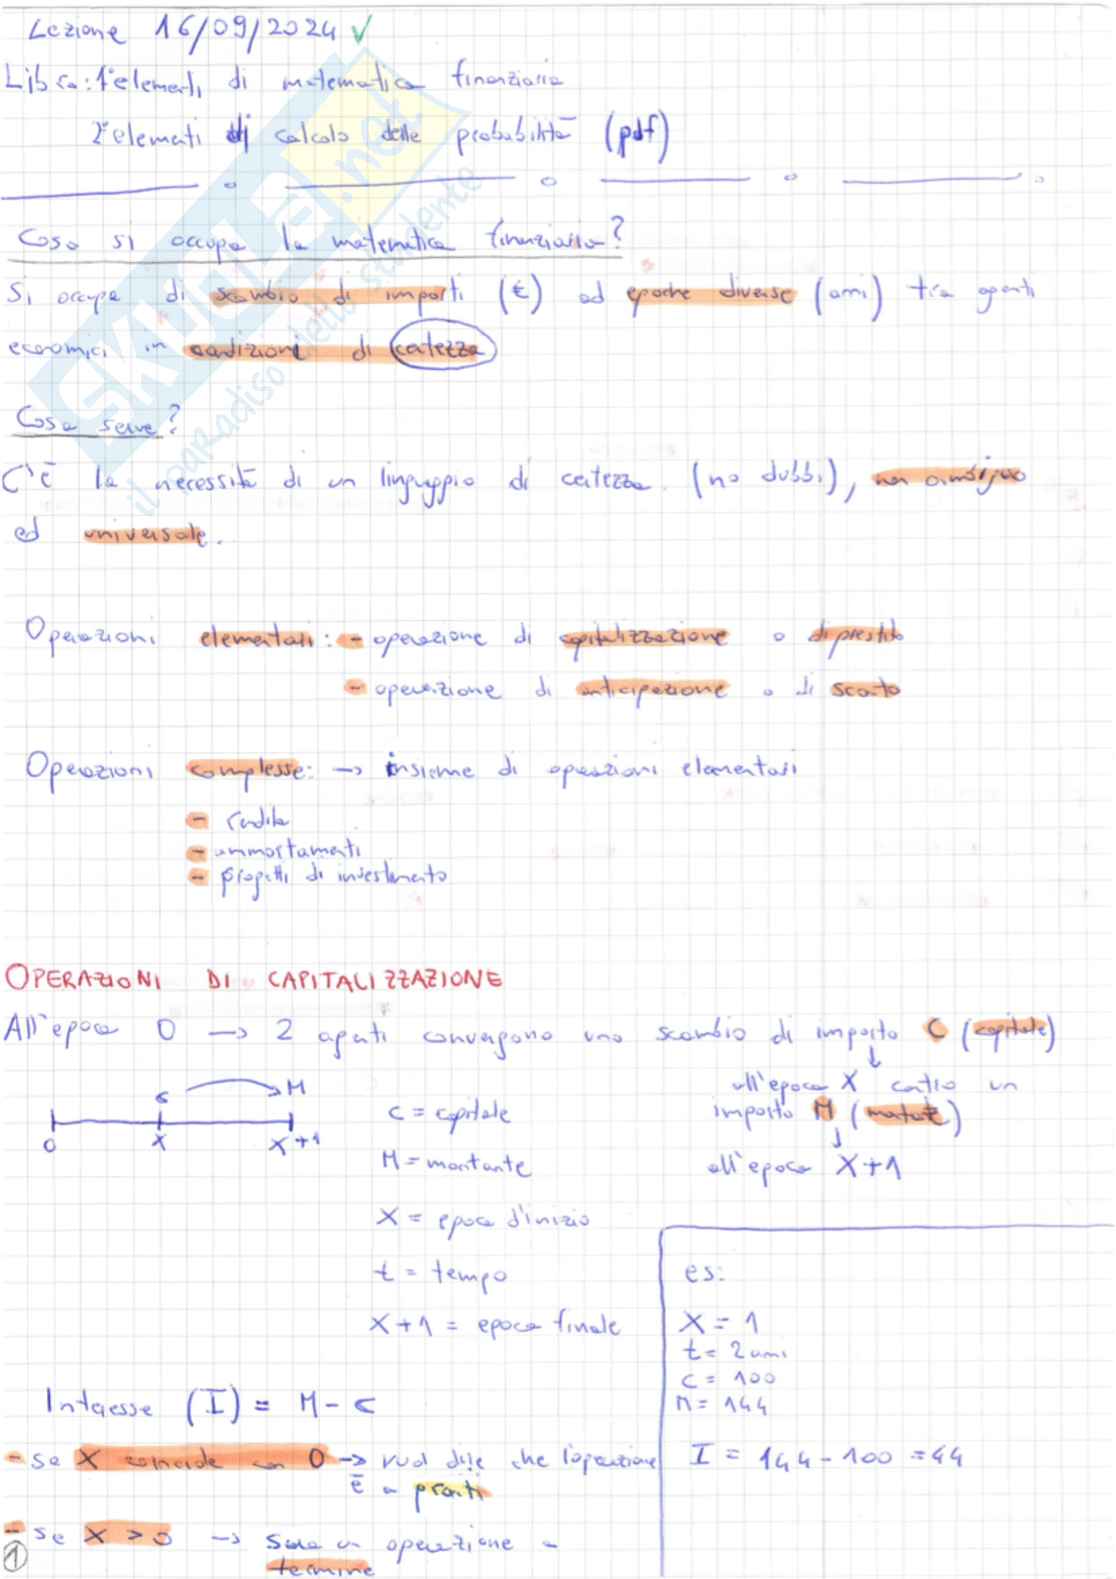 Lezione 16/09/2024 ✓
Libro: 1° elementi di matematica finanziaria
2° elementi di calcolo delle probabilità (pdf)
Cosa si occupa la matematica finanziaria?
Si occupa di scambio di importi (€) ad epoche diverse (anni) tra agenti
economici in condizioni di certezza
Cosa serve?
C'è la necessità di un linguaggio di certezza (no dubbi), non ambiguo
ed universale.
Operazioni elementari: - operazione di capitalizzazione o di prestito
- operazione di anticipazione o di sconto
Operazioni complesse: → insieme di operazioni elementari
- rendite
- ammortamenti
- progetti di investimento
OPERAZIONI DI CAPITALIZZAZIONE
All'epoca 0 → 2 agenti convengono uno scambio di importo C (capitale)
all'epoca X contro un
importo M (montante)
all'epoca X+1
c M
0 X X+1
C = capitale
M = montante
X = epoca d'inizio
t = tempo
X+1 = epoca finale
es:
X = 1
t = 2 anni
C = 100
M = 144
I = 144 - 100 = 44
Interesse (I) = M - C
- se X coincide con 0 → vuol dire che l'operazione
è a pronti
- se X > 0 → sarà un operazione a
termine
1
SKUOLA.net
il paradiso dello studente